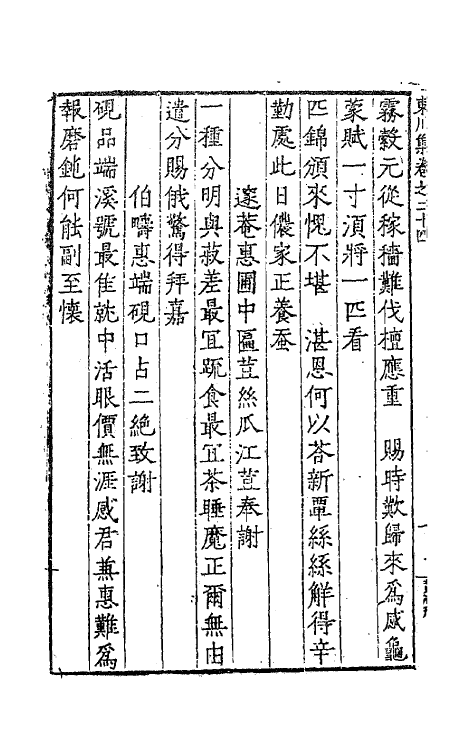 東川集卷之三十四
霖穀元從稼穡難伐檀應重　賜時歎歸來爲感龜
蒙賦一寸須將一匹看
匹錦頒來愧不堪　湛恩何以荅新覃絲絲觧得辛
勤處此日儂家正養蚕
邃菴惠圃中匾荳絲瓜江荳奉謝
一種分明與菽差最宜蔬食最宜茶睡魔正爾無由
遣分賜俄驚得拜嘉
伯疇惠端硯口占二絶致謝
硯品端溪號最佳就中活眼價無涯感君兼惠難爲
報磨鈍何能副至懷